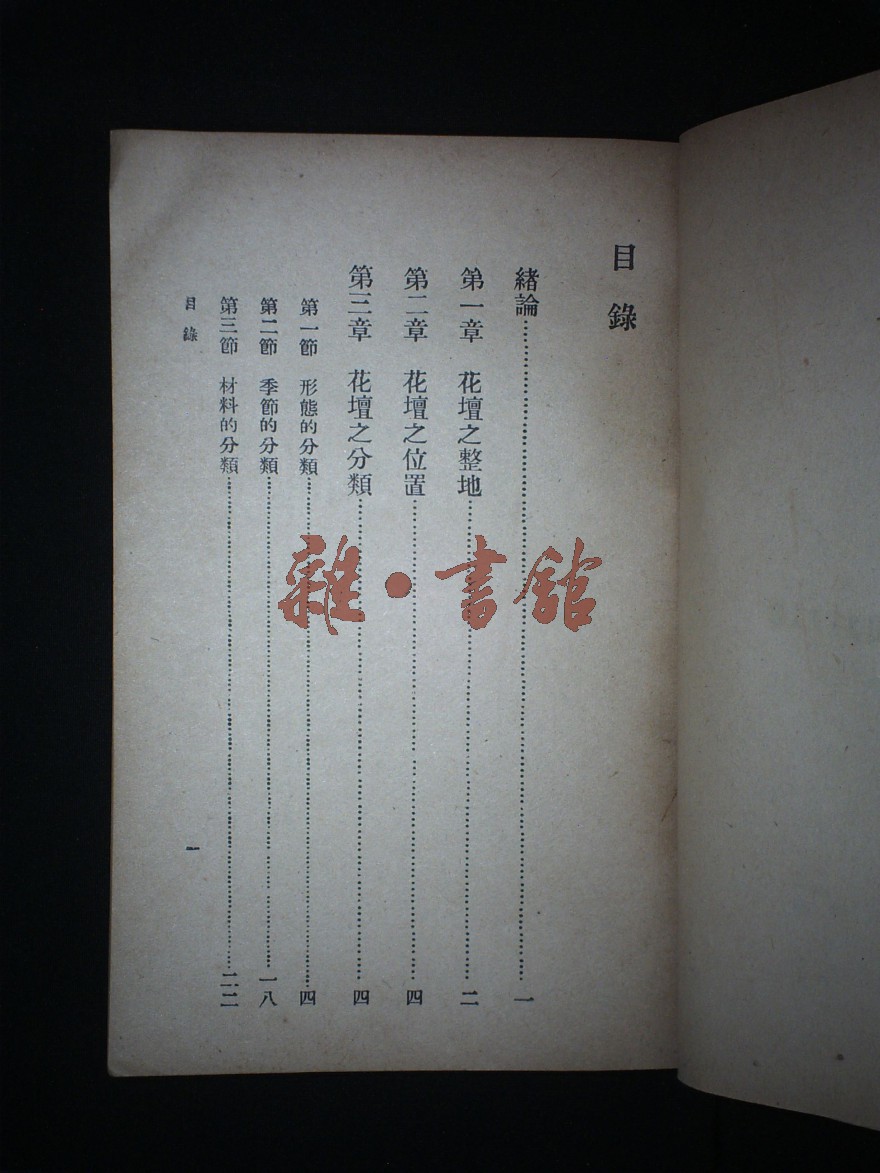 目錄
緒論……一
第一章 花壇之整地……二
第二章 花壇之位置……四
第三章 花壇之分類……四
第一節 形態的分類……四
第二節 季節的分類……一八
第三節 材料的分類……二二
目錄 一
雜・書館